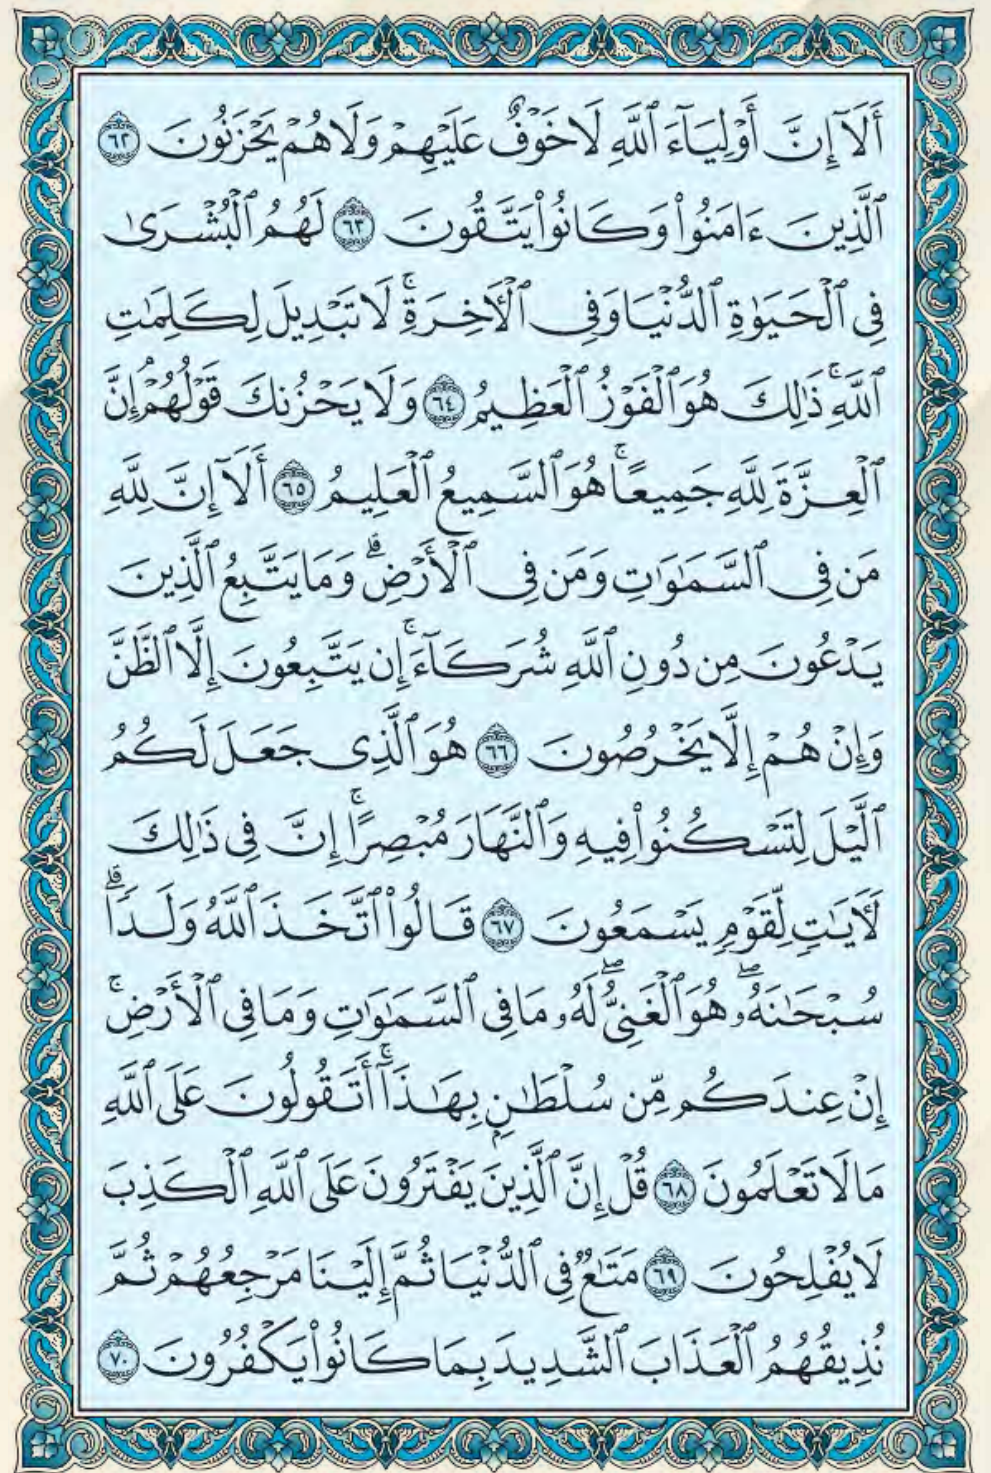 أَلَآ إِنَّ أَوْلِيَآءَ ٱللَّهِ لَا خَوْفٌ عَلَيْهِمْ وَلَا هُمْ يَحْزَنُونَ ٦٢
ٱلَّذِينَ ءَامَنُوا۟ وَكَانُوا۟ يَتَّقُونَ ٦٣ لَهُمُ ٱلْبُشْرَىٰ
فِى ٱلْحَيَوٰةِ ٱلدُّنْيَا وَفِى ٱلْأَخِرَةِ ۚ لَا تَبْدِيلَ لِكَلِمَٰتِ
ٱللَّهِ ۚ ذَٰلِكَ هُوَ ٱلْفَوْزُ ٱلْعَظِيمُ ٦٤ وَلَا يَحْزُنكَ قَوْلُهُمْ ۘ إِنَّ
ٱلْعِزَّةَ لِلَّهِ جَمِيعًا ۚ هُوَ ٱلسَّمِيعُ ٱلْعَلِيمُ ٦٥ أَلَآ إِنَّ لِلَّهِ
مَن فِى ٱلسَّمَٰوَٰتِ وَمَن فِى ٱلْأَرْضِ ۗ وَمَا يَتَّبِعُ ٱلَّذِينَ
يَدْعُونَ مِن دُونِ ٱللَّهِ شُرَكَآءَ ۚ إِن يَتَّبِعُونَ إِلَّا ٱلظَّنَّ
وَإِنْ هُمْ إِلَّا يَخْرُصُونَ ٦٦ هُوَ ٱلَّذِى جَعَلَ لَكُمُ
ٱلَّيْلَ لِتَسْكُنُوا۟ فِيهِ وَٱلنَّهَارَ مُبْصِرًا ۚ إِنَّ فِى ذَٰلِكَ
لَءَايَٰتٍ لِّقَوْمٍ يَسْمَعُونَ ٦٧ قَالُوا۟ ٱتَّخَذَ ٱللَّهُ وَلَدًا ۗ
سُبْحَٰنَهُۥ ۖ هُوَ ٱلْغَنِىُّ ۖ لَهُۥ مَا فِى ٱلسَّمَٰوَٰتِ وَمَا فِى ٱلْأَرْضِ ۚ
إِنْ عِندَكُم مِّن سُلْطَٰنٍۭ بِهَٰذَآ ۚ أَتَقُولُونَ عَلَى ٱللَّهِ
مَا لَا تَعْلَمُونَ ٦٨ قُلْ إِنَّ ٱلَّذِينَ يَفْتَرُونَ عَلَى ٱللَّهِ ٱلْكَذِبَ
لَا يُفْلِحُونَ ٦٩ مَتَٰعٌ فِى ٱلدُّنْيَا ثُمَّ إِلَيْنَا مَرْجِعُهُمْ ثُمَّ
نُذِيقُهُمُ ٱلْعَذَابَ ٱلشَّدِيدَ بِمَا كَانُوا۟ يَكْفُرُونَ ٧٠